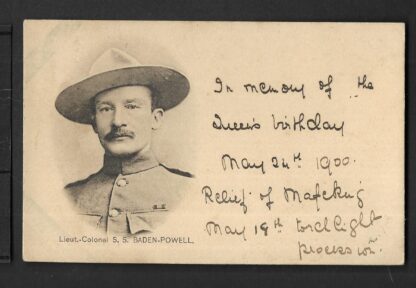 In memory of the
Queen's birthday
May 24th 1900.
Relief of Mafeking
May 19th torchlight
procession.
Lieut.-Colonel S. S. BADEN-POWELL.